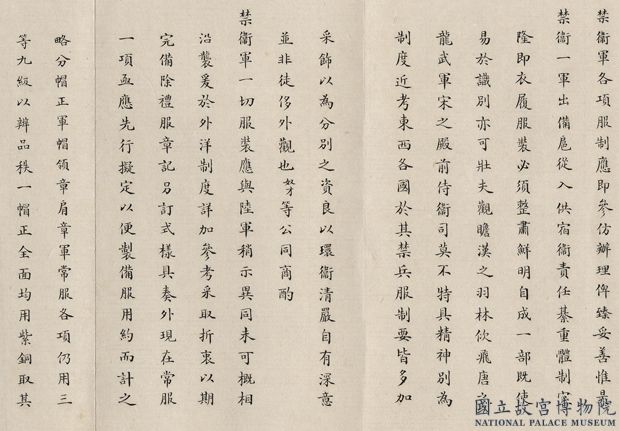 禁衛軍各項服制應即參仿辦理俾臻妥善惟是
禁衛一軍出備扈從入供宿衛責任綦重體制宜
隆即衣履服裝必須整肅鮮明自成一部既使
易於識別亦可壯夫觀瞻漢之羽林佽飛唐之
龍武軍宋之殿前侍衛司莫不特具精神別為
制度近考東西各國於其禁兵服制要皆多加
采飾以為分別之資良以環衛清嚴自有深意
並非徒侈外觀也奴才等公同商酌
禁衛軍一切服裝應與陸軍稍示異同未可概相
沿襲爰於外洋制度詳加參考采取折衷以期
完備除禮服章記另訂式樣具奏外現在常服
一項亟應先行擬定以便製備服用約而計之
略分帽正軍帽領章肩章軍常服各項仍用三
等九級以辨品秩一帽正全面均用紫銅取其
國立故宮博物院
NATIONAL PALACE MUSEUM